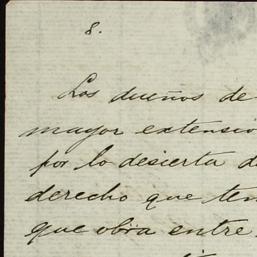 8.
Los dueños de
mayor extensio
por lo desierta d
derecho que ten
que obra entre